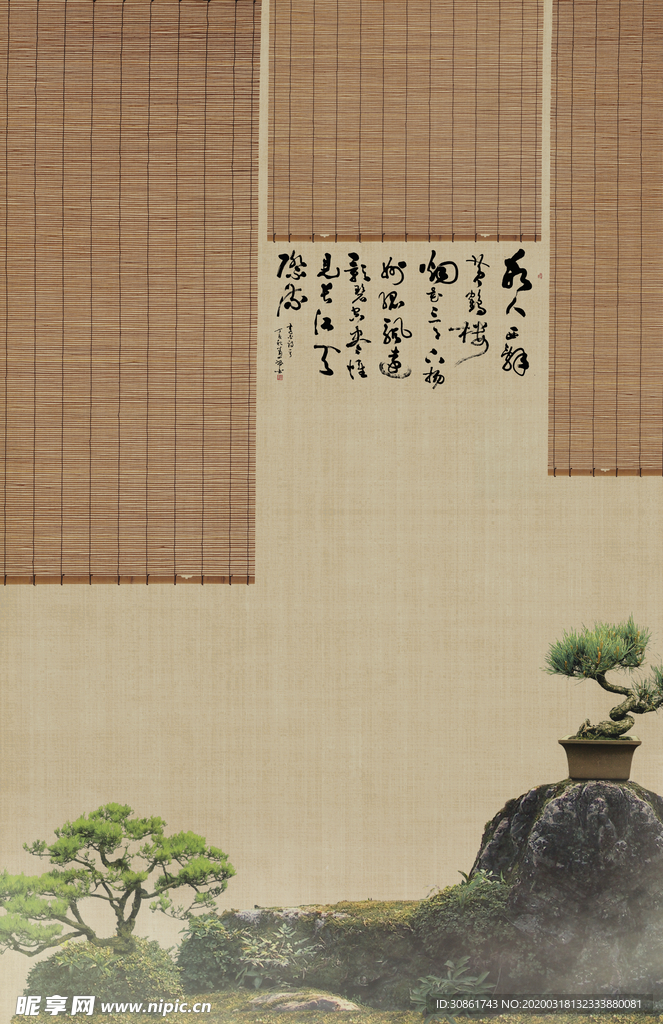 故人西辭
黄鶴楼
烟花三月下扬
州孤帆遠
影碧空尽惟
见长江天
際流
昵享网 www.nipic.cn
ID:30861743 NO:20200318132333880081